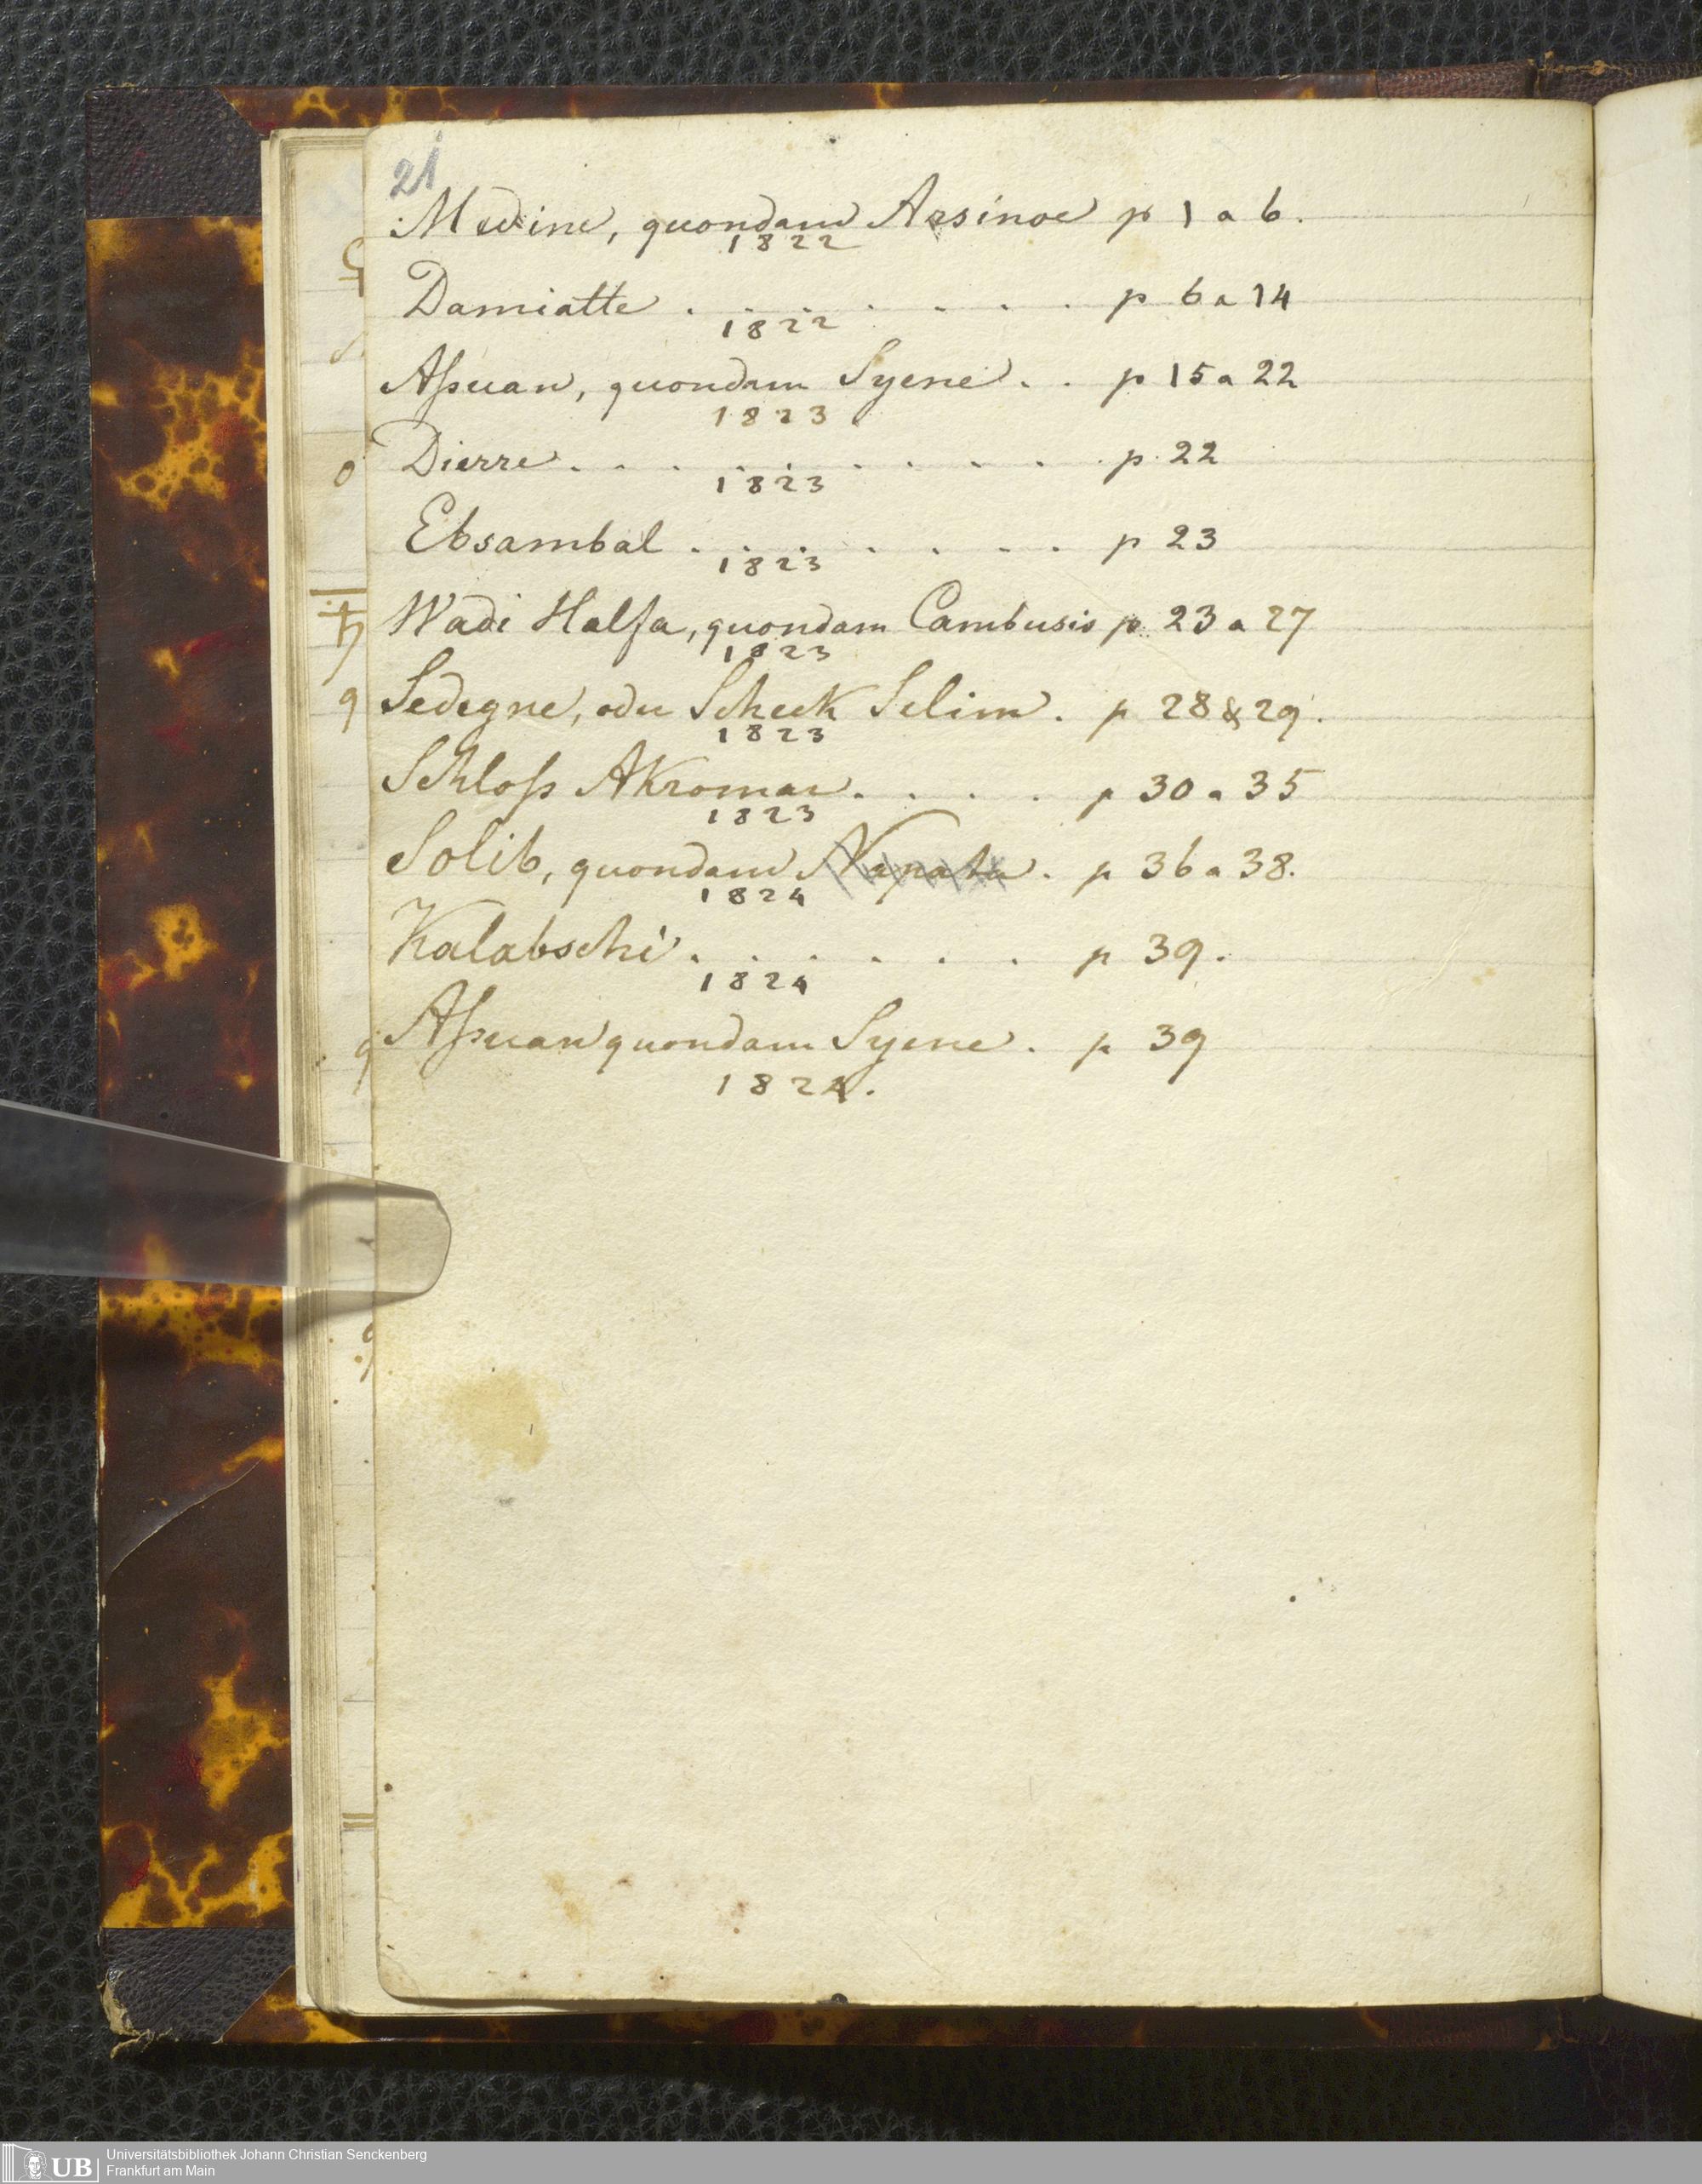 21
Medine, quondam Arsinoe p 1 a 6.
1822
Damiatte . . . . . . . p 6 a 14
1822
Aſsuan, quondam Syene . . p 15 a 22
1823
Dierre . . . . . . . . . p. 22
1823
Ebsambal . . . . . . . p 23
1823
Wadi Halfa, quondam Cambusis p. 23 a 27
1823
Sedegne, oder Scheck Selim . p 28 & 29.
1823
Schloſs Akromar . . . . p 30 a 35
1823
Solib, quondam Napata . p 36 a 38.
1824
Kalabschi . . . . . . p 39.
1824
Aſsuan quondam Syene . p 39
1824.
UB
Universitätsbibliothek Johann Christian Senckenberg
Frankfurt am Main